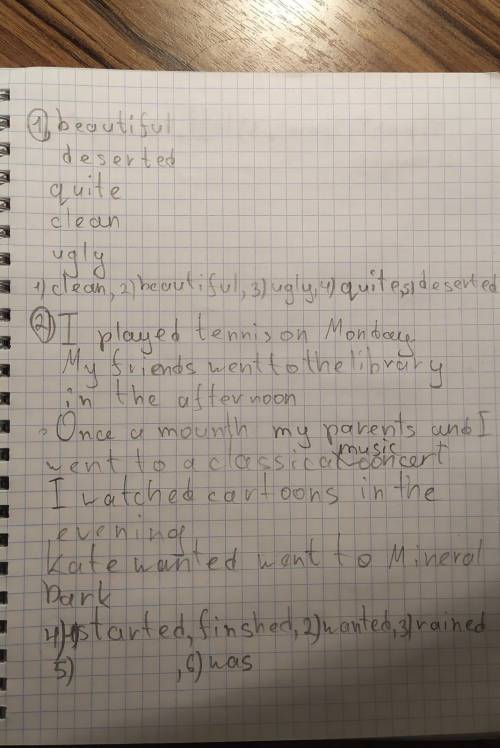 1) beautiful
deserted
quite
clean
ugly
1) clean, 2) beautiful, 3) ugly, 4) quite, 5) deserted
2) I played tennis on Monday
My friends went to the library
in the afternoon
Once a mounth my parents and I
music
went to a classical concert
I watched cartoons in the
evening
Kate wanted went to Mineral
Park
4) 1) started, finshed, 2) wanted, 3) rained
5) , 6) was